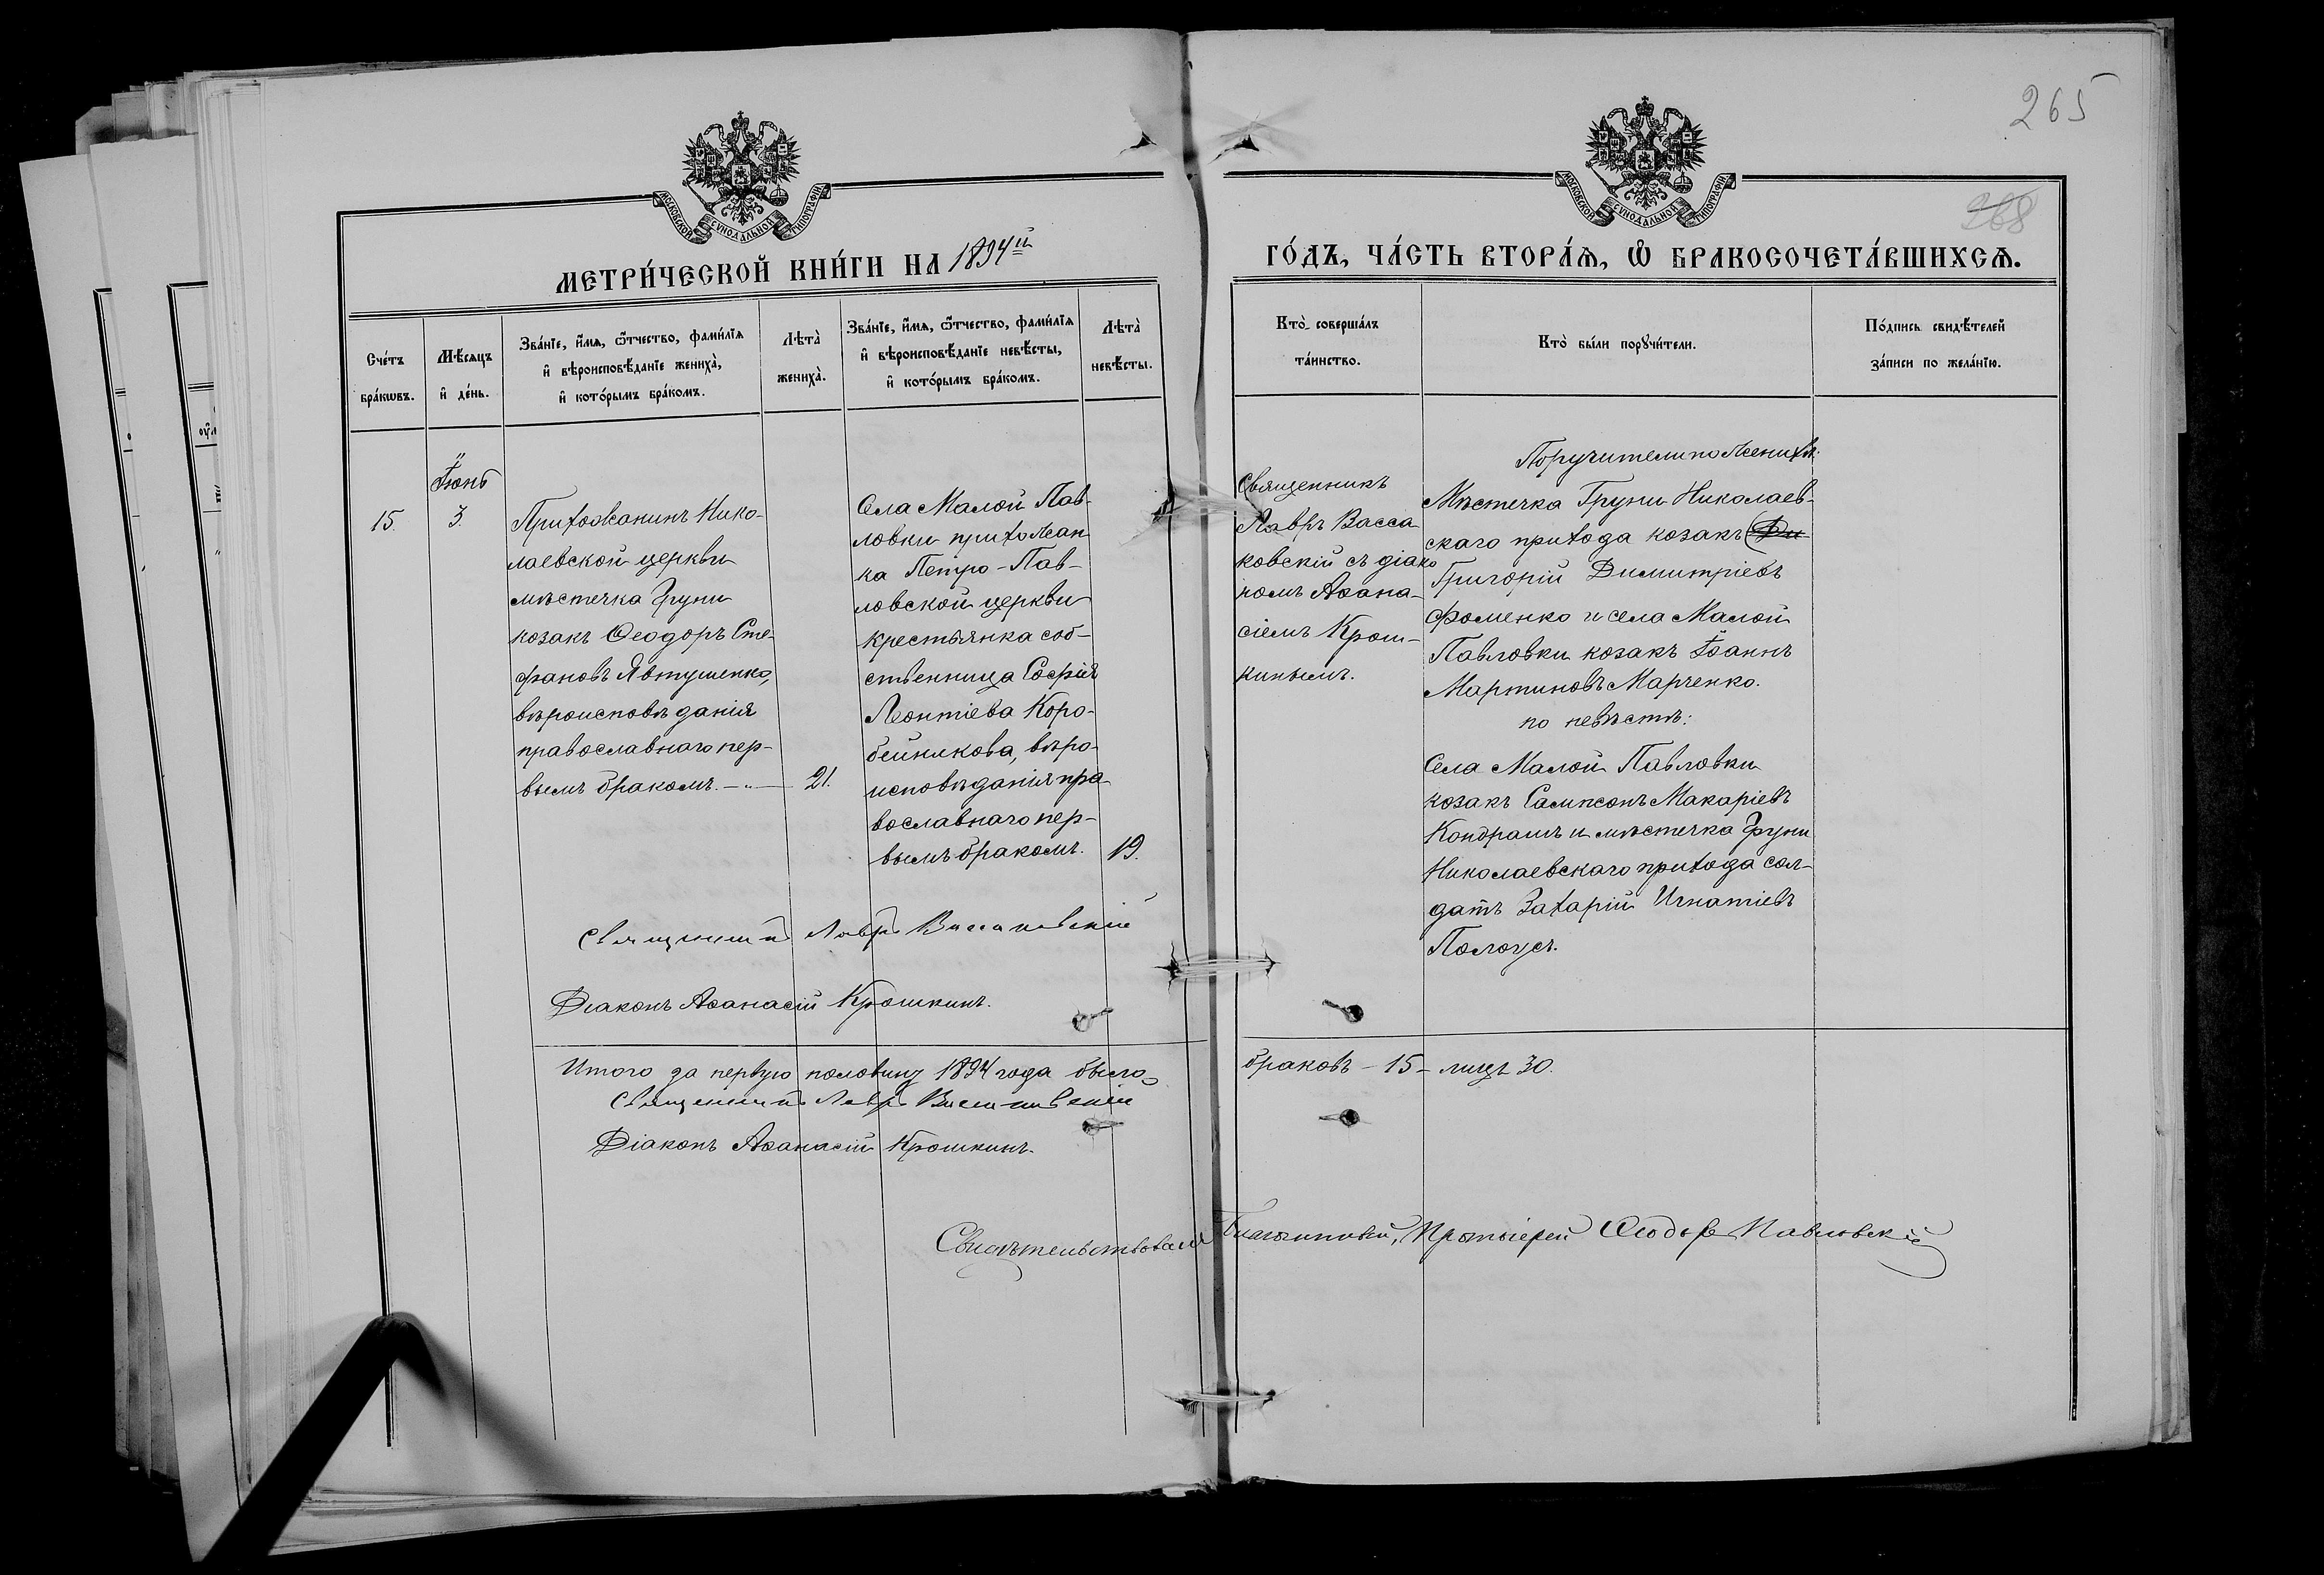 265
268
МОСКОВСКОЙ СѴНОДАЛЬНОЙ ТИПОГРАФІИ
МОСКОВСКОЙ СѴНОДАЛЬНОЙ ТИПОГРАФІИ
МЕТРИ́ЧЕСКОЙ КНИ́ГИ НА 1894й
ГО́ДЪ, ЧА́СТЬ ВТОРА́Ѧ, Ѡ҆ БРАКОСОЧЕТА́ВШИХСѦ.
Сче́тъ
бра́кѡвъ.
Мѣ́сяцъ
и҆ де́нь.
Зва́нїе, и҆́мѧ, ѻ҆́тчество, фами́лїѧ
и҆ вѣроисповѣ́данїе жениха̀,
и҆ кото́рымъ бра́комъ.
Лѣта̀
жениха̀.
Зва́нїе, и҆́мѧ, ѻ҆́тчество, фами́лїѧ
и҆ вѣроисповѣ́данїе невѣ́сты,
и҆ кото́рымъ бра́комъ.
Лѣта̀
невѣ́сты.
Кто̀ соверша́лъ
та́инство.
Кто̀ бы́ли порꙋчи́тели.
По́дпись свидѣ́телей
за́писи по жела́нїю.
15.
Іюнь
3.
Прихожанинъ Нико-
лаевской церкви
мѣстечка Груни
козакъ Ѳеодоръ Сте-
фановъ Явтушенко,
вѣроисповѣданія
православнаго пер-
вымъ бракомъ. —„—
21.
Села Малой Пав-
ловки прихожан
ка Петро-Пав-
ловской церкви
крестьянка соб-
ственница Софія
Леонтіева Коро-
бейникова, вѣро-
исповѣданія пра
вославнаго пер-
вымъ бракомъ.
19.
Священникъ
Лавръ Васса
ковскій съ діако
номъ Аѳана-
сіемъ Крош-
кинымъ.
Поручители по женихѣ:
Мѣстечка Груни Николаев-
скаго прихода козакъ (Ди
Григорій Димитріевъ
Фоменко и села Малой
Павловки козакъ Іоаннъ
Мартиновъ Марченко.
по невѣстѣ:
Села Малой Павловки
козакъ Сампсонъ Макаріевъ
Кондрашъ и мѣстечка Груни
Николаевскаго прихода сол-
датъ Захарій Игнатіевъ
Полоусъ.
Священникъ Лавръ Вассаковскій
Діаконъ Аѳанасій Крошкинъ.
Итого за первую половину 1894 года было браковъ - 15 - лицъ 30.
Священникъ Лавръ Вассаковскій
Діаконъ Аѳанасій Крошкинъ.
Свидѣтельствовалъ Благочинный, Протоіерей Ѳеодоръ Павловскій